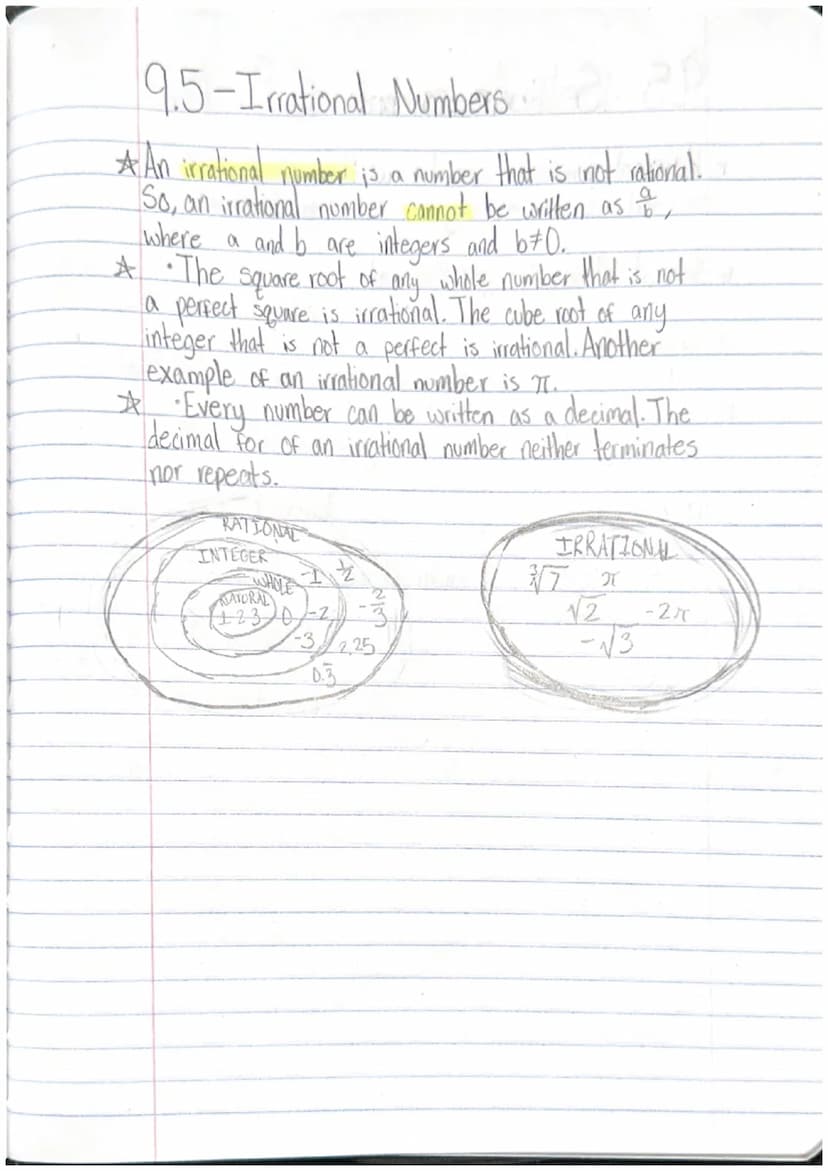 9.5-Irrational Numbers
☆ An irrational number is a number that is not rational.
So, an irrational number cannot be written as a/b,
where a and b are integers and b≠0.
☆ • The square root of any whole number that is not
a perfect square is irrational. The cube root of any
integer that is not a perfect is irrational. Another
example of an irrational number is π.
☆ • Every number can be written as a decimal. The
decimal for of an irrational number neither terminates
nor repeats.
RATIONAL
INTEGER
WHOLE -1 1/2
NATURAL
1 2 3 0 -2 -2/3
-3 2.25
0.3̅
IRRATIONAL
∛7 π
√2 -2π
-√3